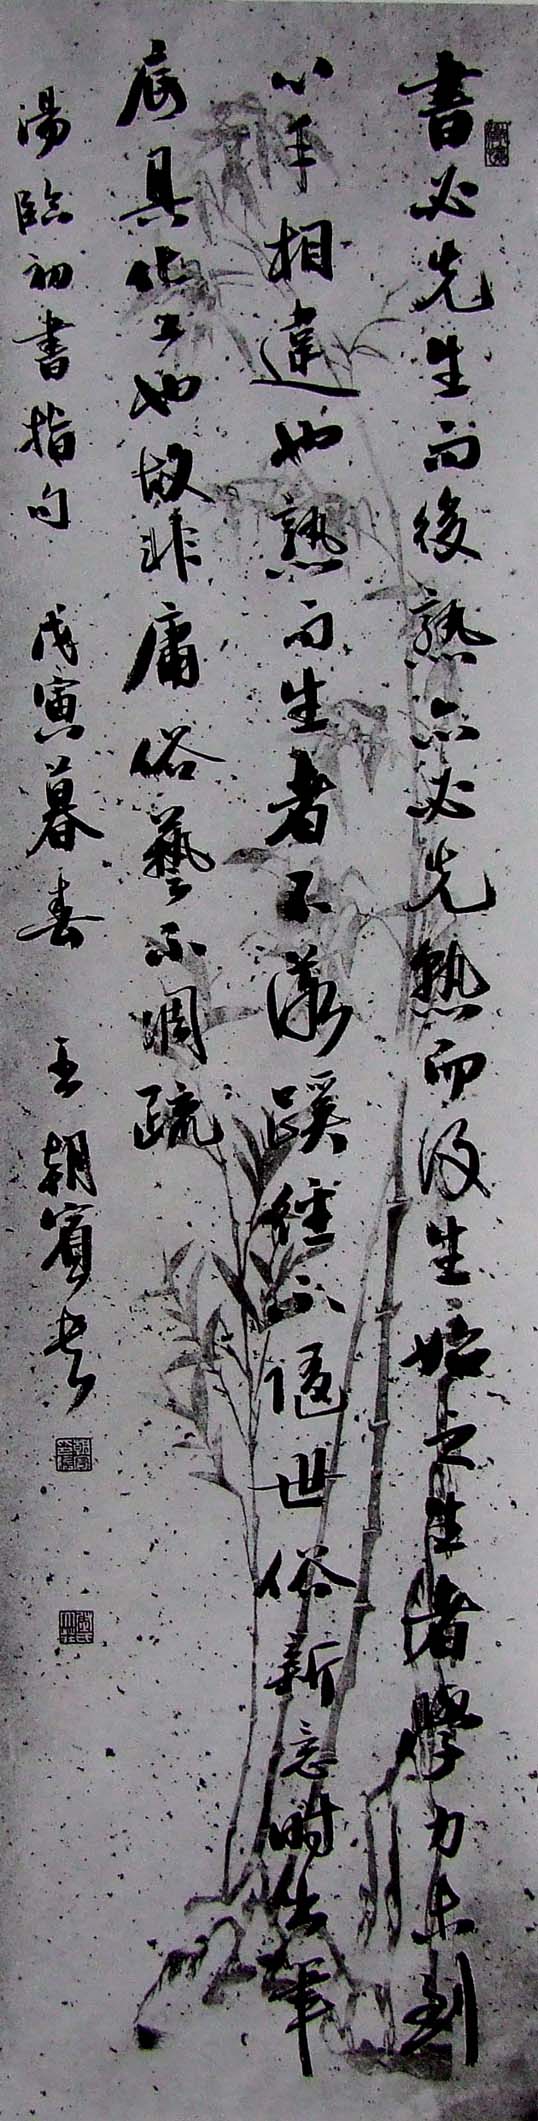 書必先生而後熟亦必先熟而後生始之生者學力未到
心手相違也熟而生者不落蹊徑不随世俗新意時出筆
底具化工也故非庸俗藝不凋疏
湯臨初書指句 戊寅暮春 王朝賓書